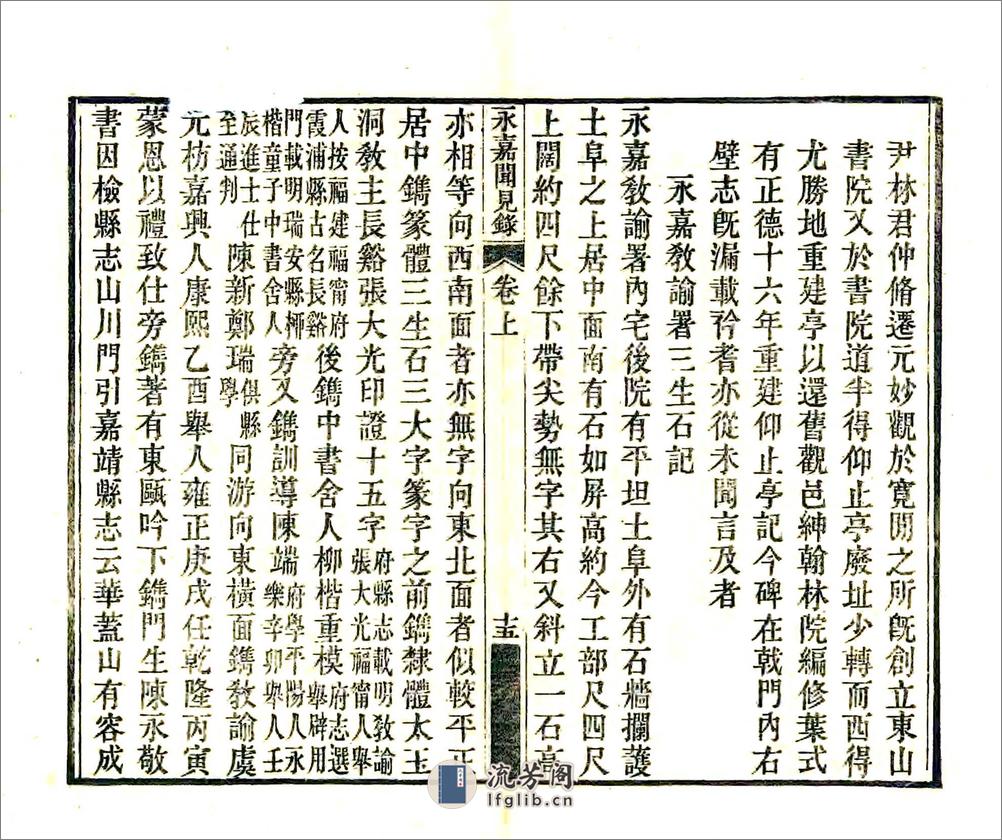 尹林君仲脩遷元妙觀於寬閒之所既創立東山
書院又於書院道半得仰止亭廢址少轉而西得
尤勝地重建亭以還舊觀邑紳翰林院編修葉式
有正德十六年重建仰止亭記今碑在戟門內右
壁志既漏載矜耆亦從未聞言及者
永嘉教諭署三生石記
永嘉教諭署內宅後院有平坦土阜外有石牆攔護
土阜之上居中面南有石如屏高約今工部尺四尺
上闊約四尺餘下帶尖勢無字其右又斜立一石高
永嘉聞見錄 卷上 十五
亦相等向西南面者亦無字向東北面者似較平正
居中鐫篆體三生石三大字篆字之前鐫隸體太玉
洞教主長谿張大光印證十五字府縣志載明教諭張大光福甯人舉
人按福建福甯府霞浦縣古名長谿後鐫中書舍人柳楷重模府志選舉辟用
門載明瑞安縣柳楷童子中書舍人旁又鐫訓導陳端府學平陽人永樂辛卯舉人壬
辰進士仕至通判陳新鄭瑞俱縣學同游向東橫面鐫教諭虞
元枋嘉興人康熙乙酉舉人雍正庚戌任乾隆丙寅
蒙恩以禮致仕旁鐫著有東甌吟下鐫門生陳永敬
書因檢縣志山川門引嘉靖縣志云華蓋山有容成
流芳阁
lfglib.cn